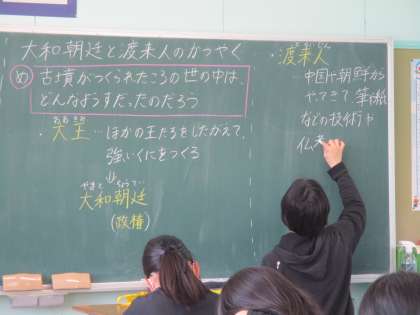 大和朝廷と渡来人のかつやく
め 古墳がつくられたころの世の中は、
どんなようすだったのだろう
おおきみ
・大王…ほかの王たちをしたがえて、
強いくにをつくる
⇓
やまと ちょうてい
大和朝廷
(政権)
・渡来人
…中国や朝鮮から
やってきて、筆、紙
などの技術や
仏